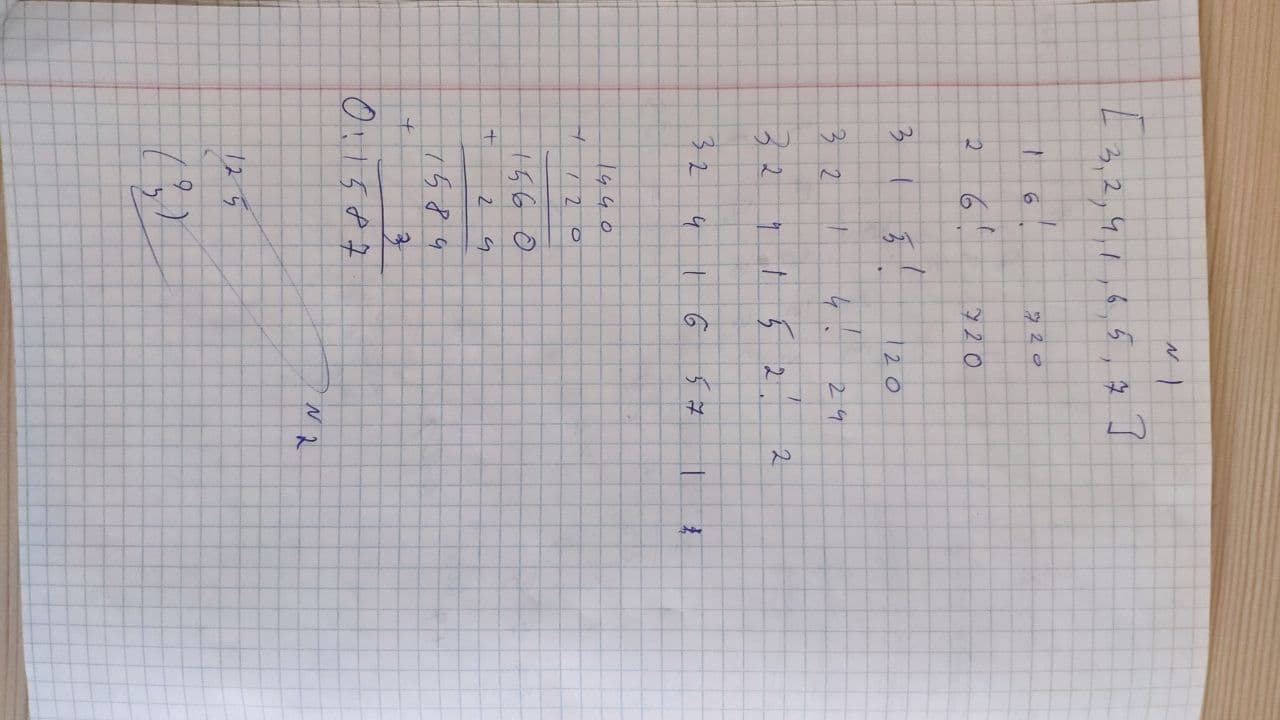 N 1
[3, 2, 4, 1, 6, 5, 7]
1 6! 720
2 6! 720
3 1 5! 120
3 2 1 4! 24
3 2 4 1 5 2! 2
3 2 4 1 6 5 7 1 1
1440
+ 120
1560
+ 24
1584
+ 3
O: 1587
N 2
125